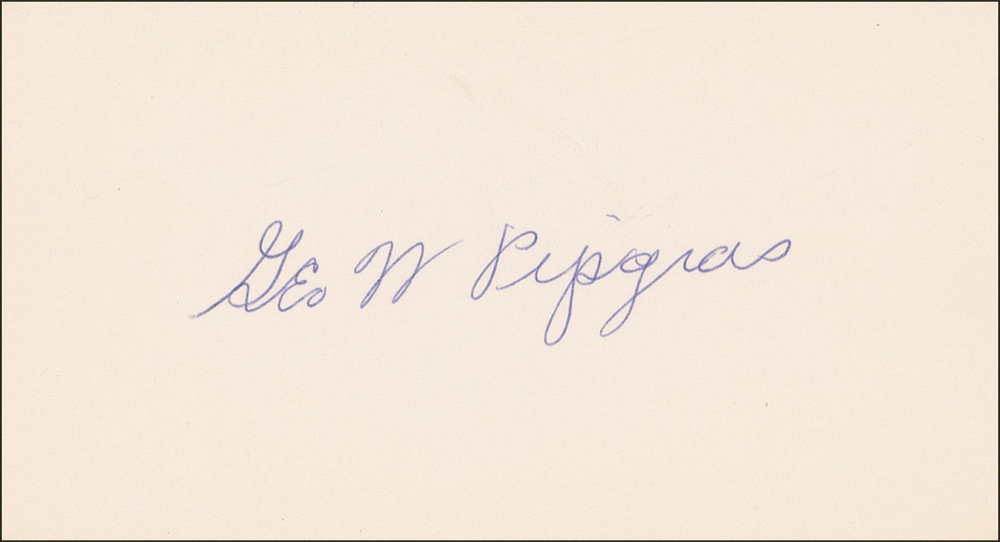 Geo W Pipgras